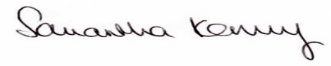 Samantha Kenny